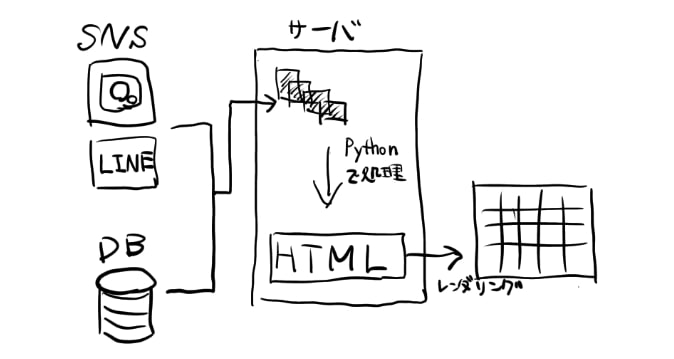 SNS
LINE
DB
サーバ
Python
で処理
HTML
レンダリング